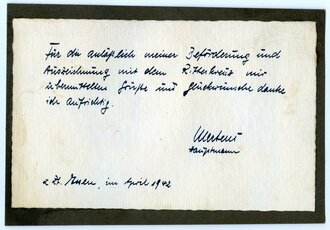 Für die anläßlich meiner Beförderung und
Auszeichnung mit dem Ritterkreuz mir
übermittelten Grüße und Glückwünsche danke
ich aufrichtig.
Mertens
Hauptmann
z. Zt. im April 1942